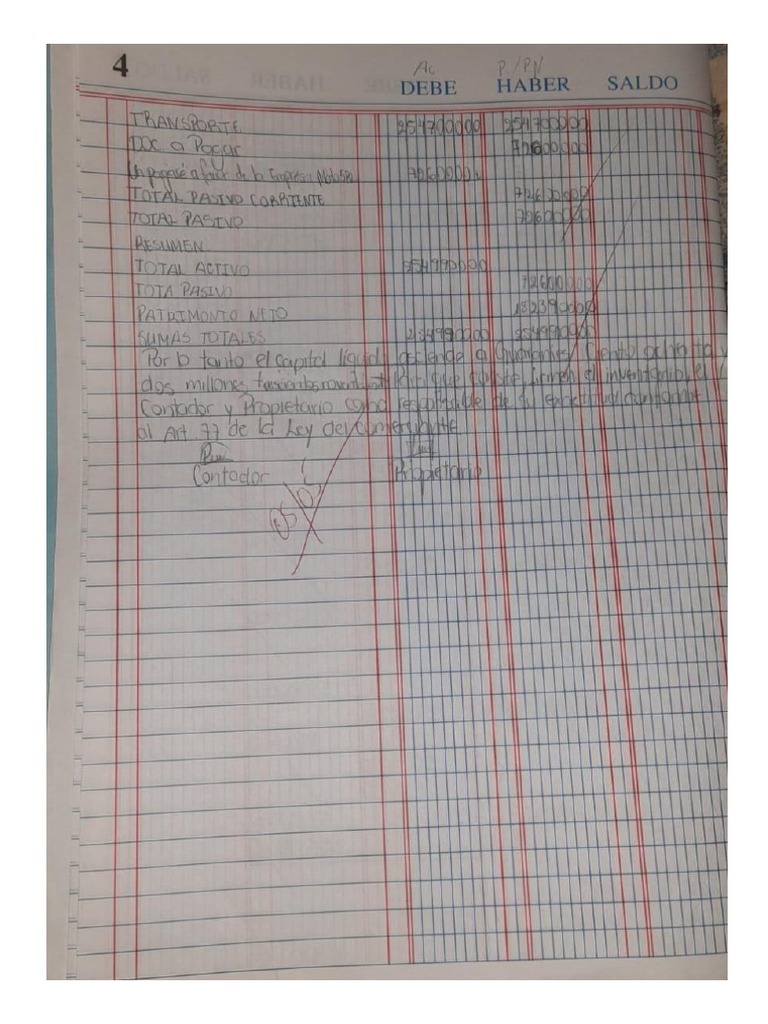 4
Ac P./PN
DEBE HABER SALDO
TRANSPORTE 254700000 254700000
DOC a Pagar 72600000
Un pagaré a favor de la Empresa 72600000
TOTAL PASIVO CORRIENTE 72600000
TOTAL PASIVO 72600000
RESUMEN
TOTAL ACTIVO 254990000
TOTA PASIVO 72600000
PATRIMONTO NETO 182390000
SUMAS TOTALES 254990000 254990000
Por lo tanto el capital líquido asciende a Guaraníes Ciento ochenta y
dos millones Para que conste, firman el inventario, el
Contador y Propietario como responsable de su exactitud conforme
al Art. 77 de la Ley del Comerciante
Contador Propietario
05/05